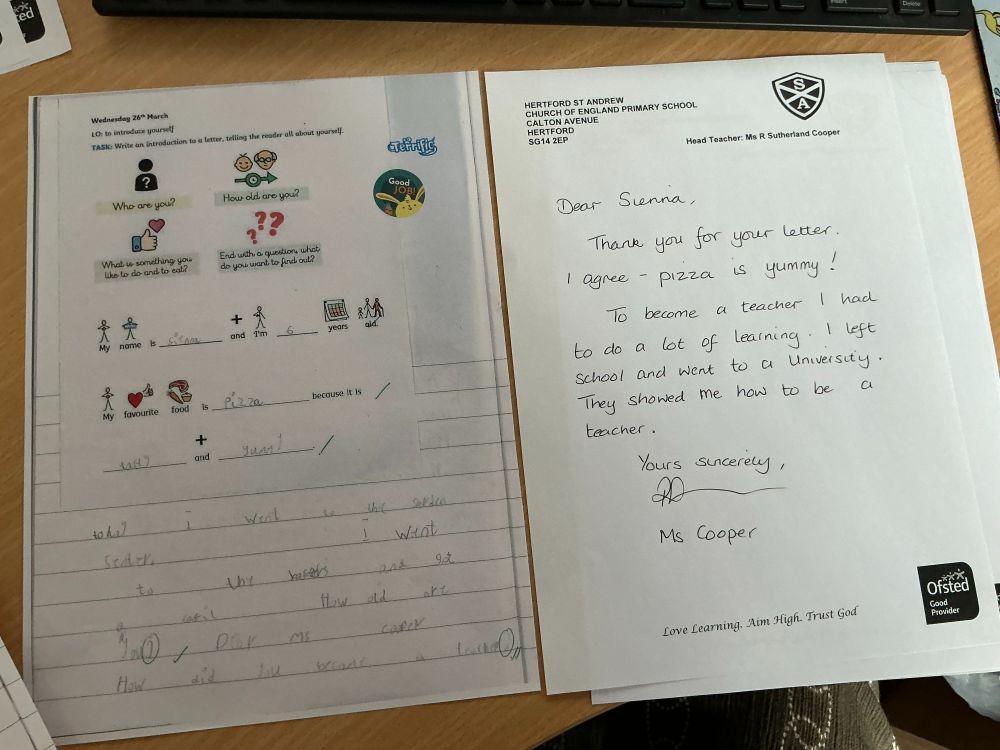 Insert
Delete
Wednesday 26th March
LO: to introduce yourself
TASK: Write an introduction to a letter, telling the reader all about yourself.
Terrific
Good
JOB!
Who are you?
How old are you?
What is something you
like to do and to eat?
End with a question, what
do you want to find out?
My name is + and I'm 6 years old.
My favourite food is pizza because it is
+
and yum!
I went to the
I went
to the and got
How old are
you? Dear Ms
How did became a
HERTFORD ST ANDREW
CHURCH OF ENGLAND PRIMARY SCHOOL
CALTON AVENUE
HERTFORD
SG14 2EP
S
A
Head Teacher: Ms R Sutherland Cooper
Dear Sienna,
Thank you for your letter.
I agree - pizza is yummy!
To become a teacher I had
to do a lot of learning. I left
school and went to a University.
They showed me how to be a
teacher.
Yours sincerely,
Ms Cooper
Love Learning. Aim High. Trust God
Ofsted
Good
Provider